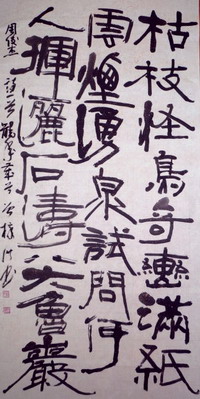 枯枝怪鳥奇巒滿紙
雲煙湧泉試問何
人揮灑石濤八大魯巖
周俊杰
詩一首